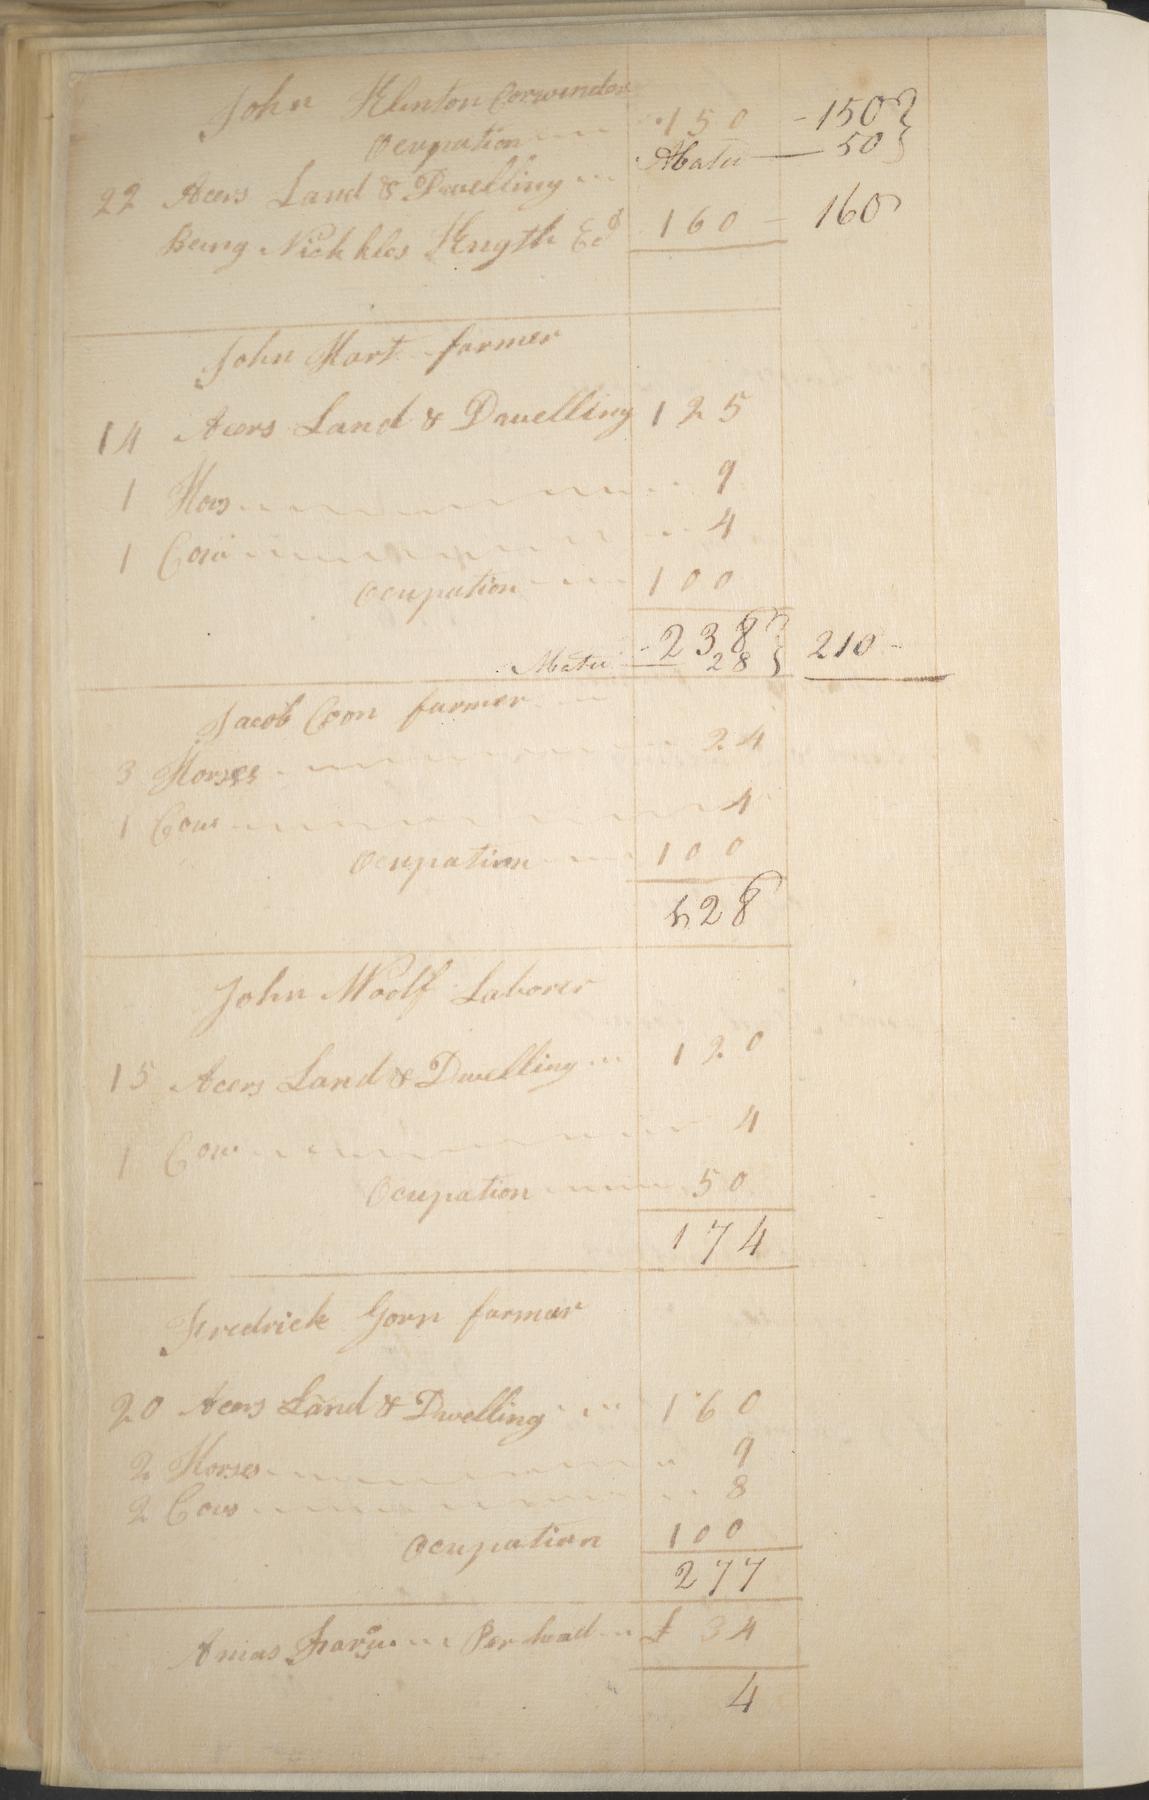 John Klinton Corwinder
Ocupation 150 - 150
Abate — 50
22 Acers Land & Dwelling
Being Nickles 160 - 160
John Hart farmer
14 Acers Land & Dwelling 125
1 Hors 9
1 Cow 4
Ocupation 100
238
Abate 28 210 -
Jacob Coon farmer
3 Horses 24
1 Cow 4
Ocupation 100
128
John Woolf Laborer
15 Acers Land & Dwelling 120
1 Cow 4
Ocupation 50
174
Fredrick Gorn farmar
20 Acers Land & Dwelling 160
2 Horses 9
2 Cows 8
Ocupation 100
277
Per head £ 34
4